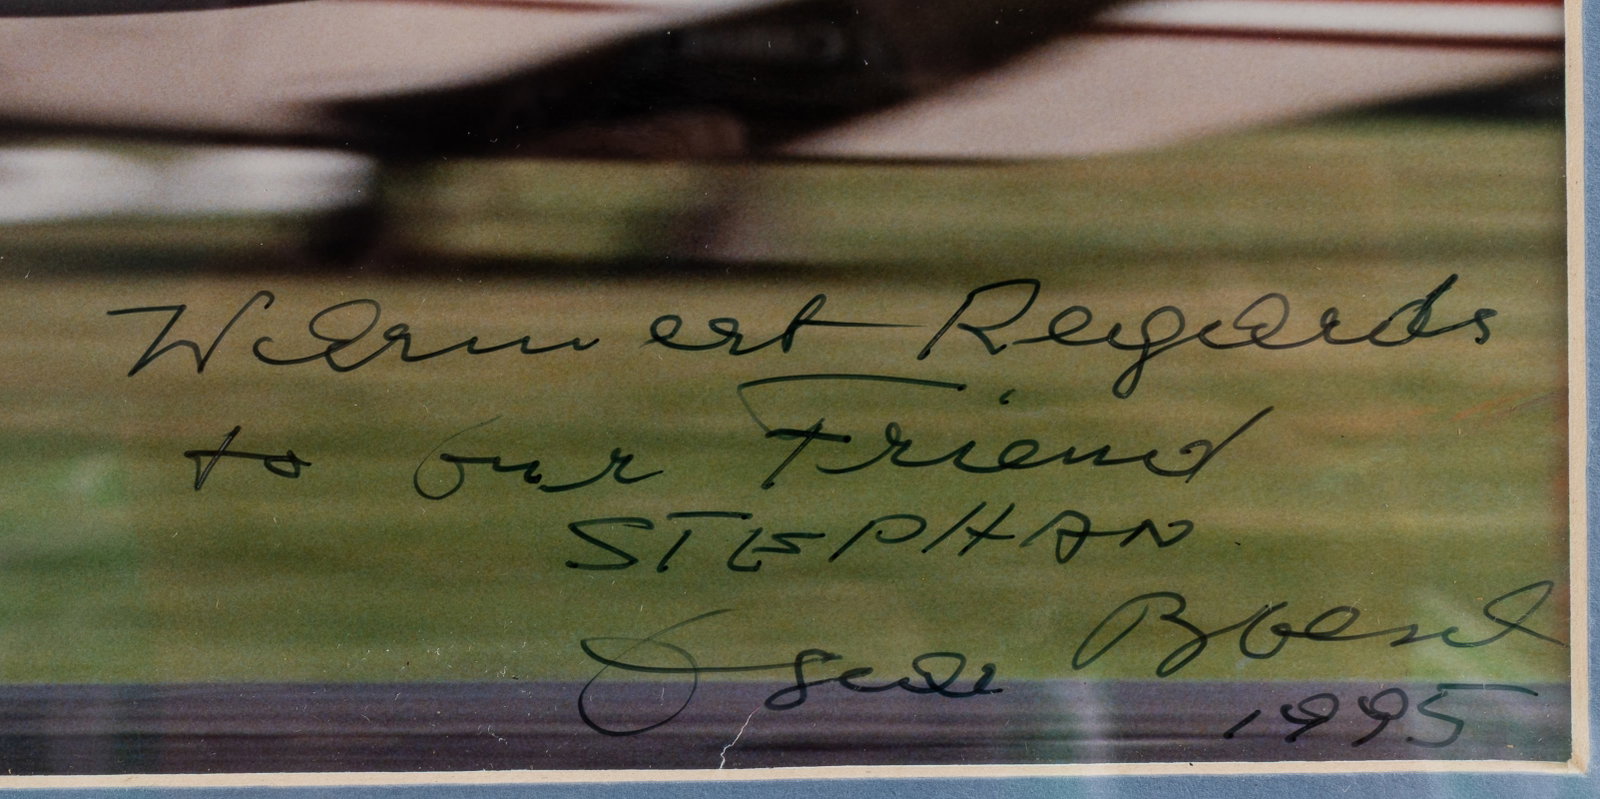 Warmest Regards
to our Friend
STEPHAN
Boesel
1995